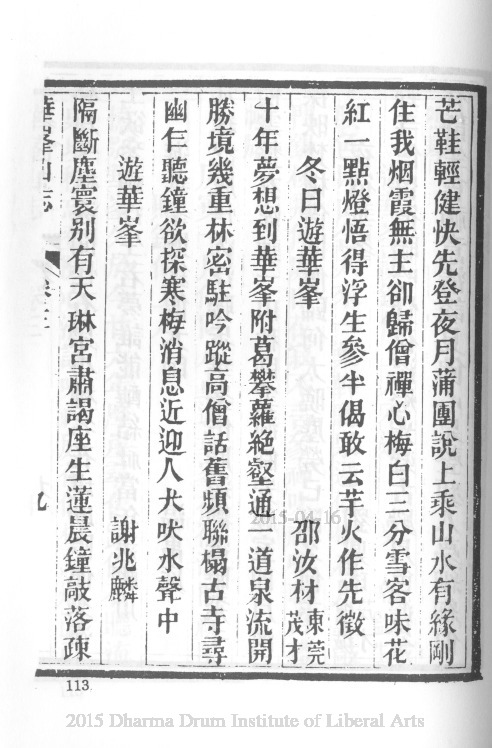 芒鞋輕健快先登夜月蒲團說上乘山水有緣剛
住我烟霞無主卻歸僧禪心梅白三分雪客味花
紅一點燈悟得浮生參半偈敢云芋火作先徵
冬日遊華峯 邵汝材 東莞茂才
十年夢想到華峯附葛攀蘿絶壑通一道泉流開
勝境幾重林密駐吟蹤高僧話舊頻聯榻古寺尋
幽仨聽鐘欲探寒梅消息近迎人犬吠水聲中
遊華峯 謝兆麟
隔斷塵寰別有天琳宮肅謁座生蓮晨鐘敲落疎
華峯山志 卷三 九
113
2015-04-16
2015 Dharma Drum Institute of Liberal Arts